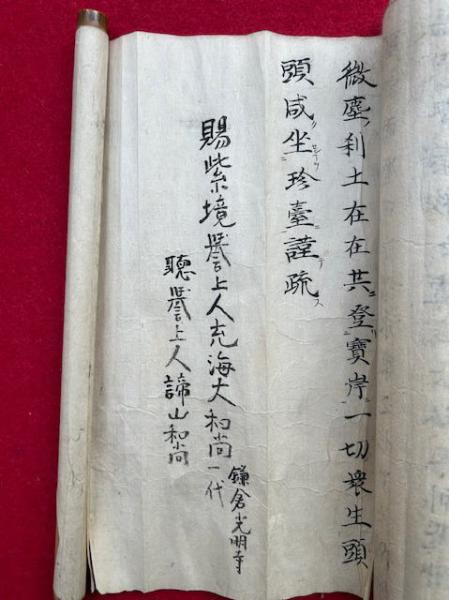 微塵利土在在共登寶岸一切衆生頭
頭咸坐珍臺謹疏
賜紫境譽上人充海大和尚一代
鎌倉光明寺
聽譽上人諦山和尚